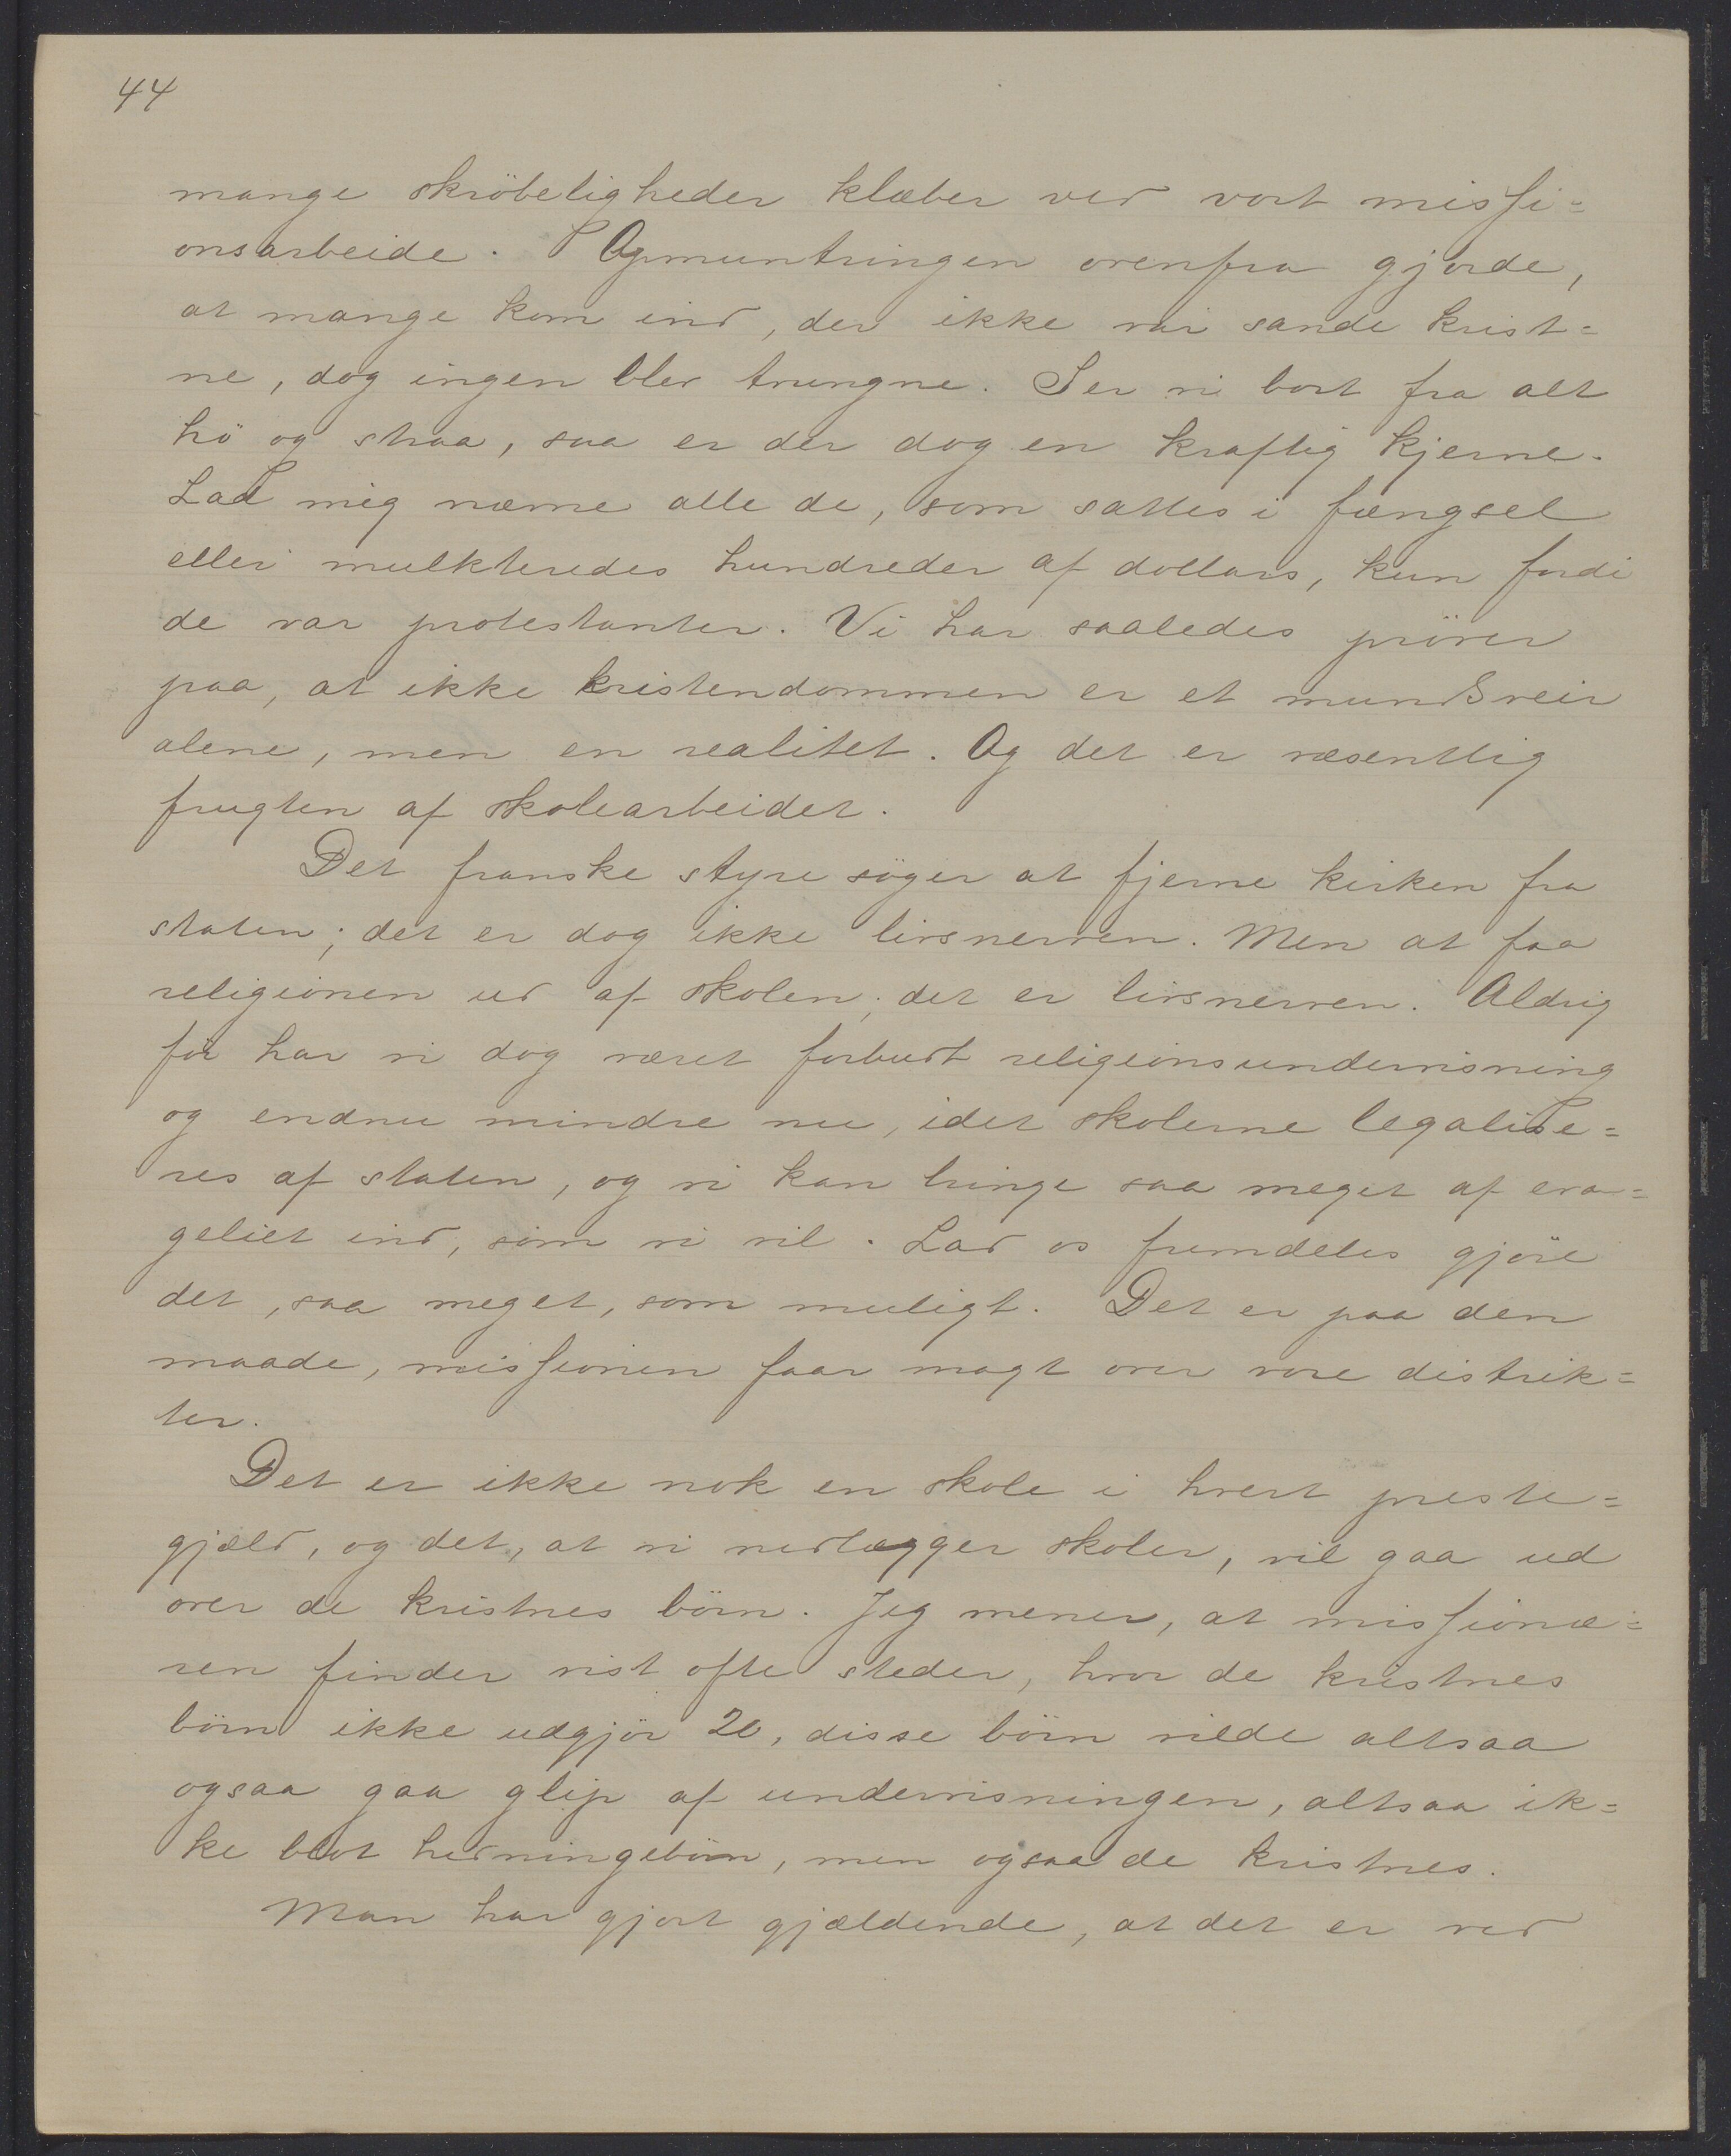 44
mange skröbeligheder klæber ved vort missi=
onsarbeide. Opmuntringen ovenfra gjorde,
at mange kom ind, der ikke var sande krist=
ne, dog ingen blev tvungne. Ser vi bort fra alt
hö og straa, saa er der dog en kraftig kjerne.
Lad mig nævne alle de, som sattes i fængsel
eller mulkteredes hundreder af dollars, kun fordi
de var protestanter. Vi har saaledes pröver
paa, at ikke kristendommen er et mundsveir
alene, men en realitet. Og det er væsentlig
frugten af skolearbeidet.
Det franske styre söger at fjerne kirken fra
staten; det er dog ikke livsnerven. Men at faa
religionen ud af skolen, det er livsnerven. Aldrig
för har vi dog været forbudt religionsundervisning
og endnu mindre nu, idet skolerne legalise=
res af staten, og vi kan bringe saa meget af evan=
geliet ind, som vi vil. Lad os fremdeles gjöre
det, saa meget, som muligt. Det er paa den
maade, missionen faar magt over vore distrik=
ter.
Det er ikke nok en skole i hvert preste=
gjæld, og det, at vi nedlægger skoler, vil gaa ud
over de kristnes börn. Jeg mener, at missionæ=
ren finder vist ofte steder, hvor de kristnes
börn ikke udgjör 20, disse börn vilde altsaa
ogsaa gaa glip af undervisningen, altsaa ik=
ke blot hedningebörn, men ogsaa de kristnes.
Man har gjort gjældende, at det er ved